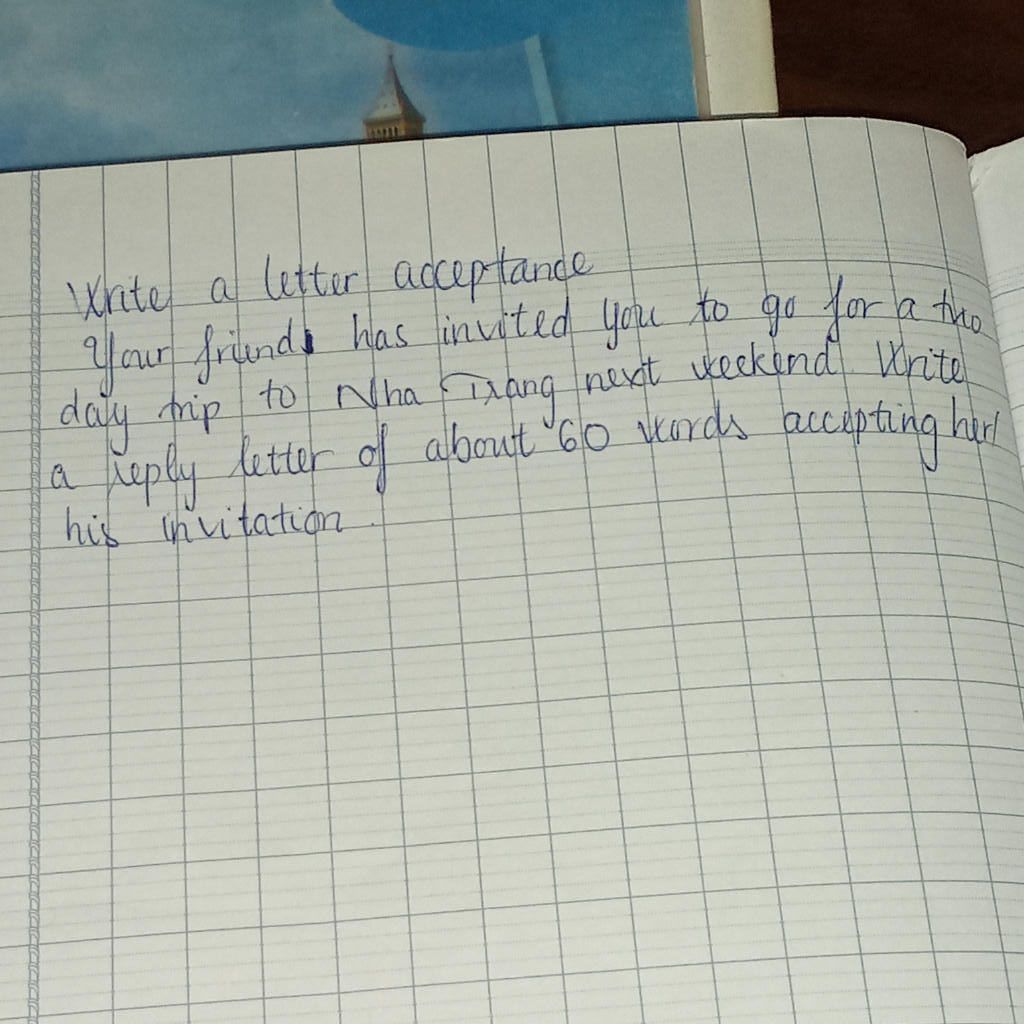 Write a letter acceptance
Your friend has invited you to go for a two
day trip to Nha Trang next weekend Write
a reply letter of about 60 words accepting her/
his invitation.